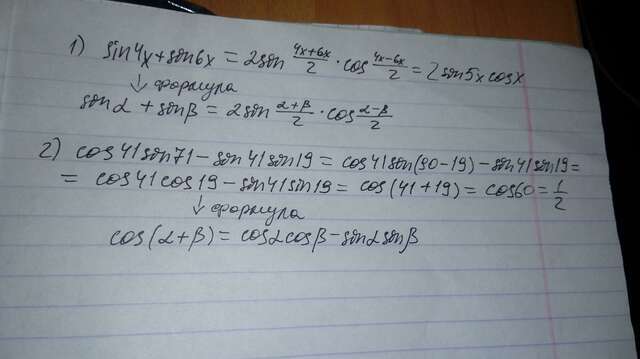 1) sin4x+sin6x = 2sin (4x+6x)/2 · cos (4x-6x)/2 = 2sin5x cosx
↓ формула
sinα + sinβ = 2sin (α+β)/2 · cos (α-β)/2
2) cos41sin71 - sin41sin19 = cos41sin(90-19) - sin41sin19 =
= cos41cos19 - sin41sin19 = cos(41+19) = cos60 = 1/2
↓ формула
cos(α+β) = cosαcosβ - sinαsinβ